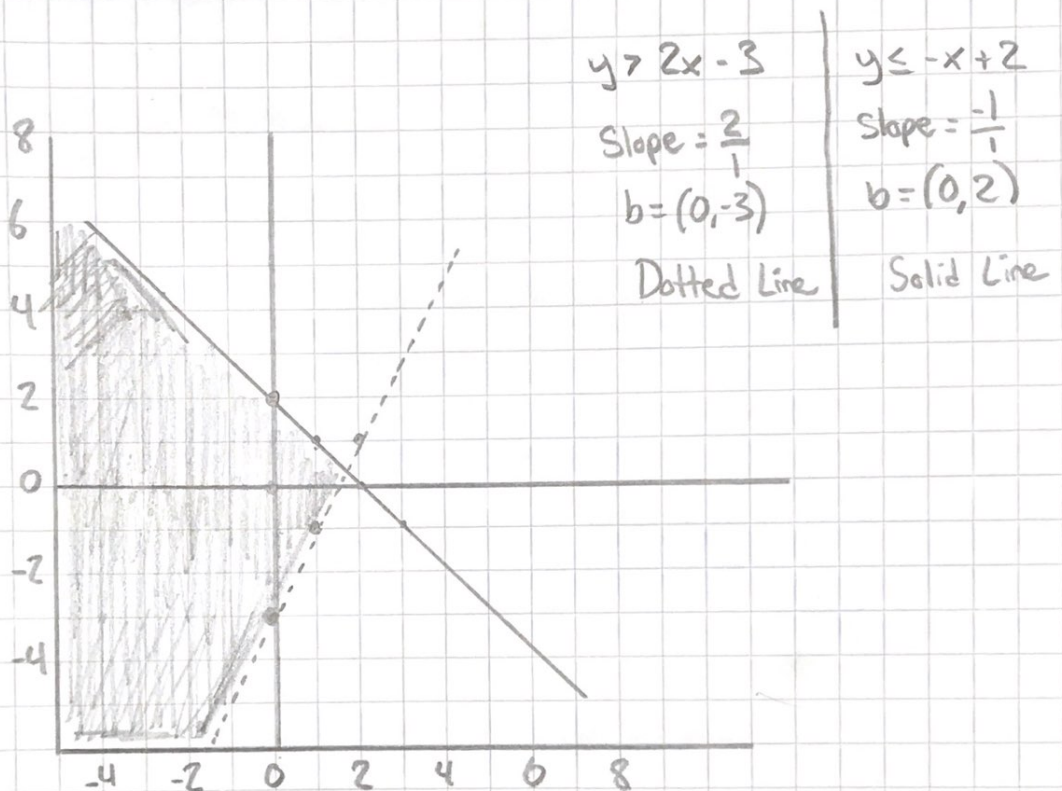 y > 2x - 3
Slope = 2/1
b = (0,-3)
Dotted Line
y ≤ -x + 2
Slope = -1/1
b = (0, 2)
Solid Line
8
6
4
2
0
-2
-4
-4 -2 0 2 4 6 8